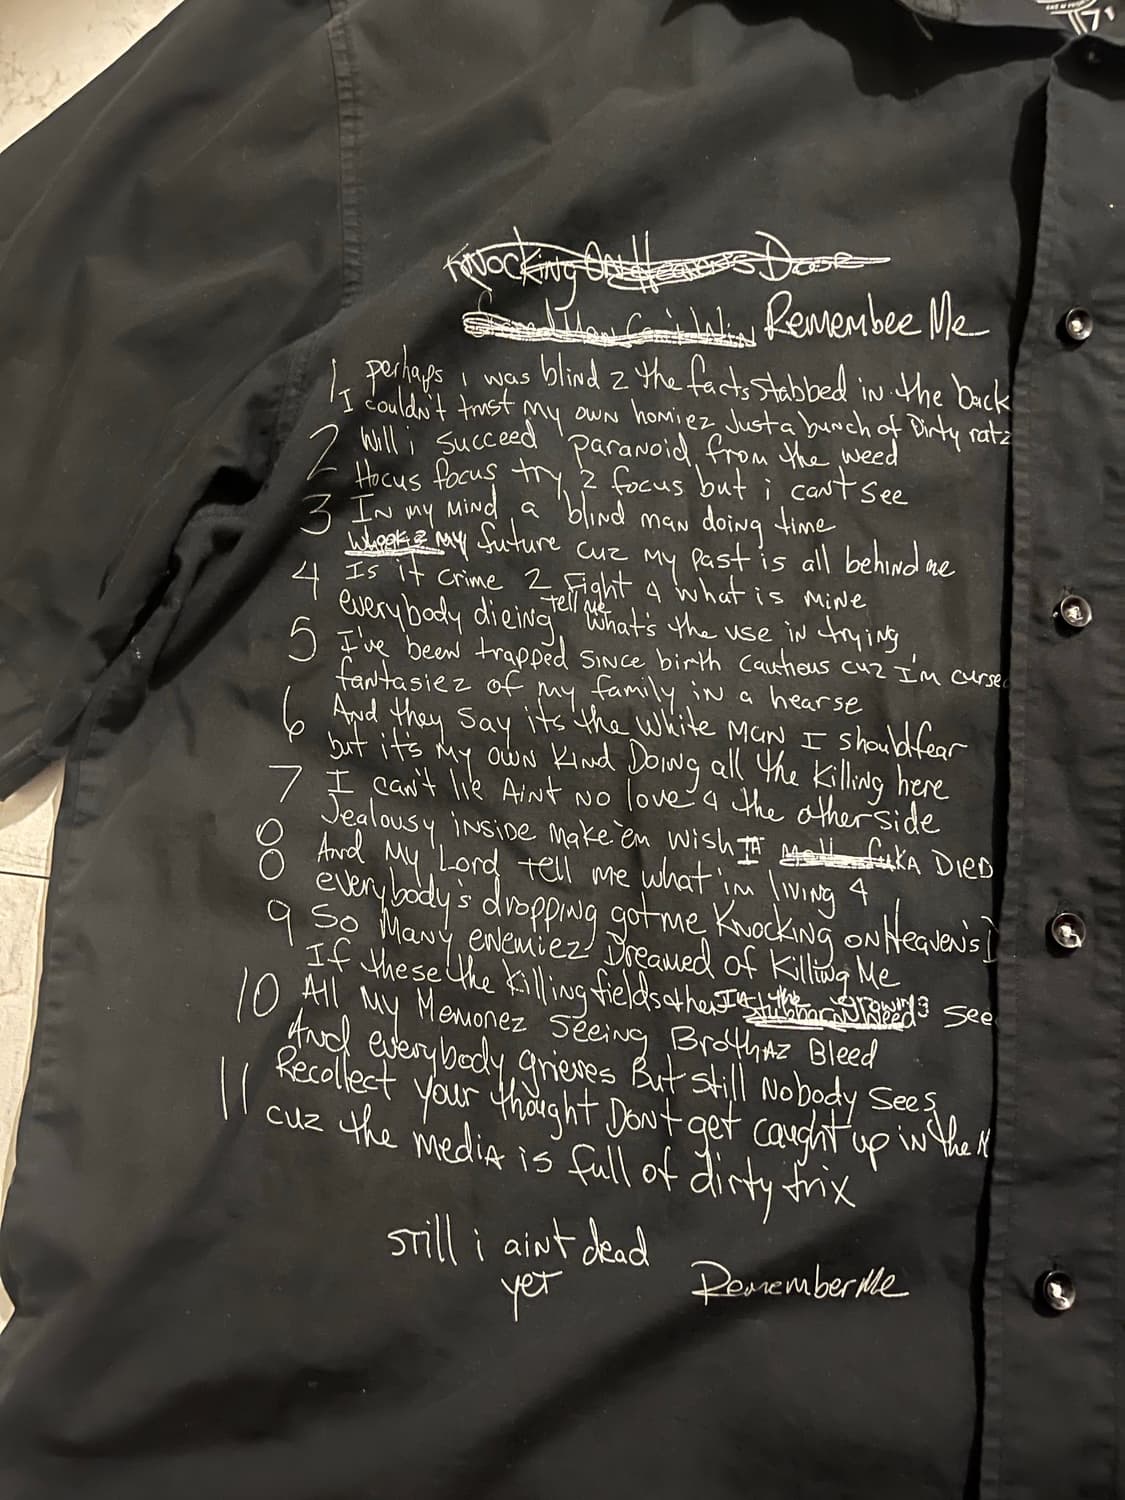 71
Knocking On Heaven's Door
Blind Man Can't Win Remember Me
1 perhaps i was blind 2 the facts, Stabbed in the back
I couldn't trust my own homiez Just a bunch of Dirty ratz
2 Will i succeed paranoid from the weed
Hocus focus try 2 focus but i can't see
3 In my mind a blind man doing time
my future cuz my past is all behind me
4 Is it crime 2 Fight 4 what is mine
everybody dieing Tell me what's the use in trying
5 I've been trapped since birth cautious cuz I'm curse
fantasiez of my family in a hearse
6 And they say its the white man I should fear
but it's my own kind Doing all the killing here
7 I can't lie Aint no love 4 the other side
Jealousy inside make 'em wish I Died
8 And My Lord tell me what i'm living 4
everybody's dropping got me Knocking on Heaven's
9 So Many enemiez Dreamed of Killing Me
If these the killing fields other In the growing see
10 All My Memorez seeing BrothAz Bleed
And everybody grieves But still Nobody sees
11 Recollect your thought Don't get caught up in the
cuz the media is full of dirty trix
still i aint dead
yet Remember Me